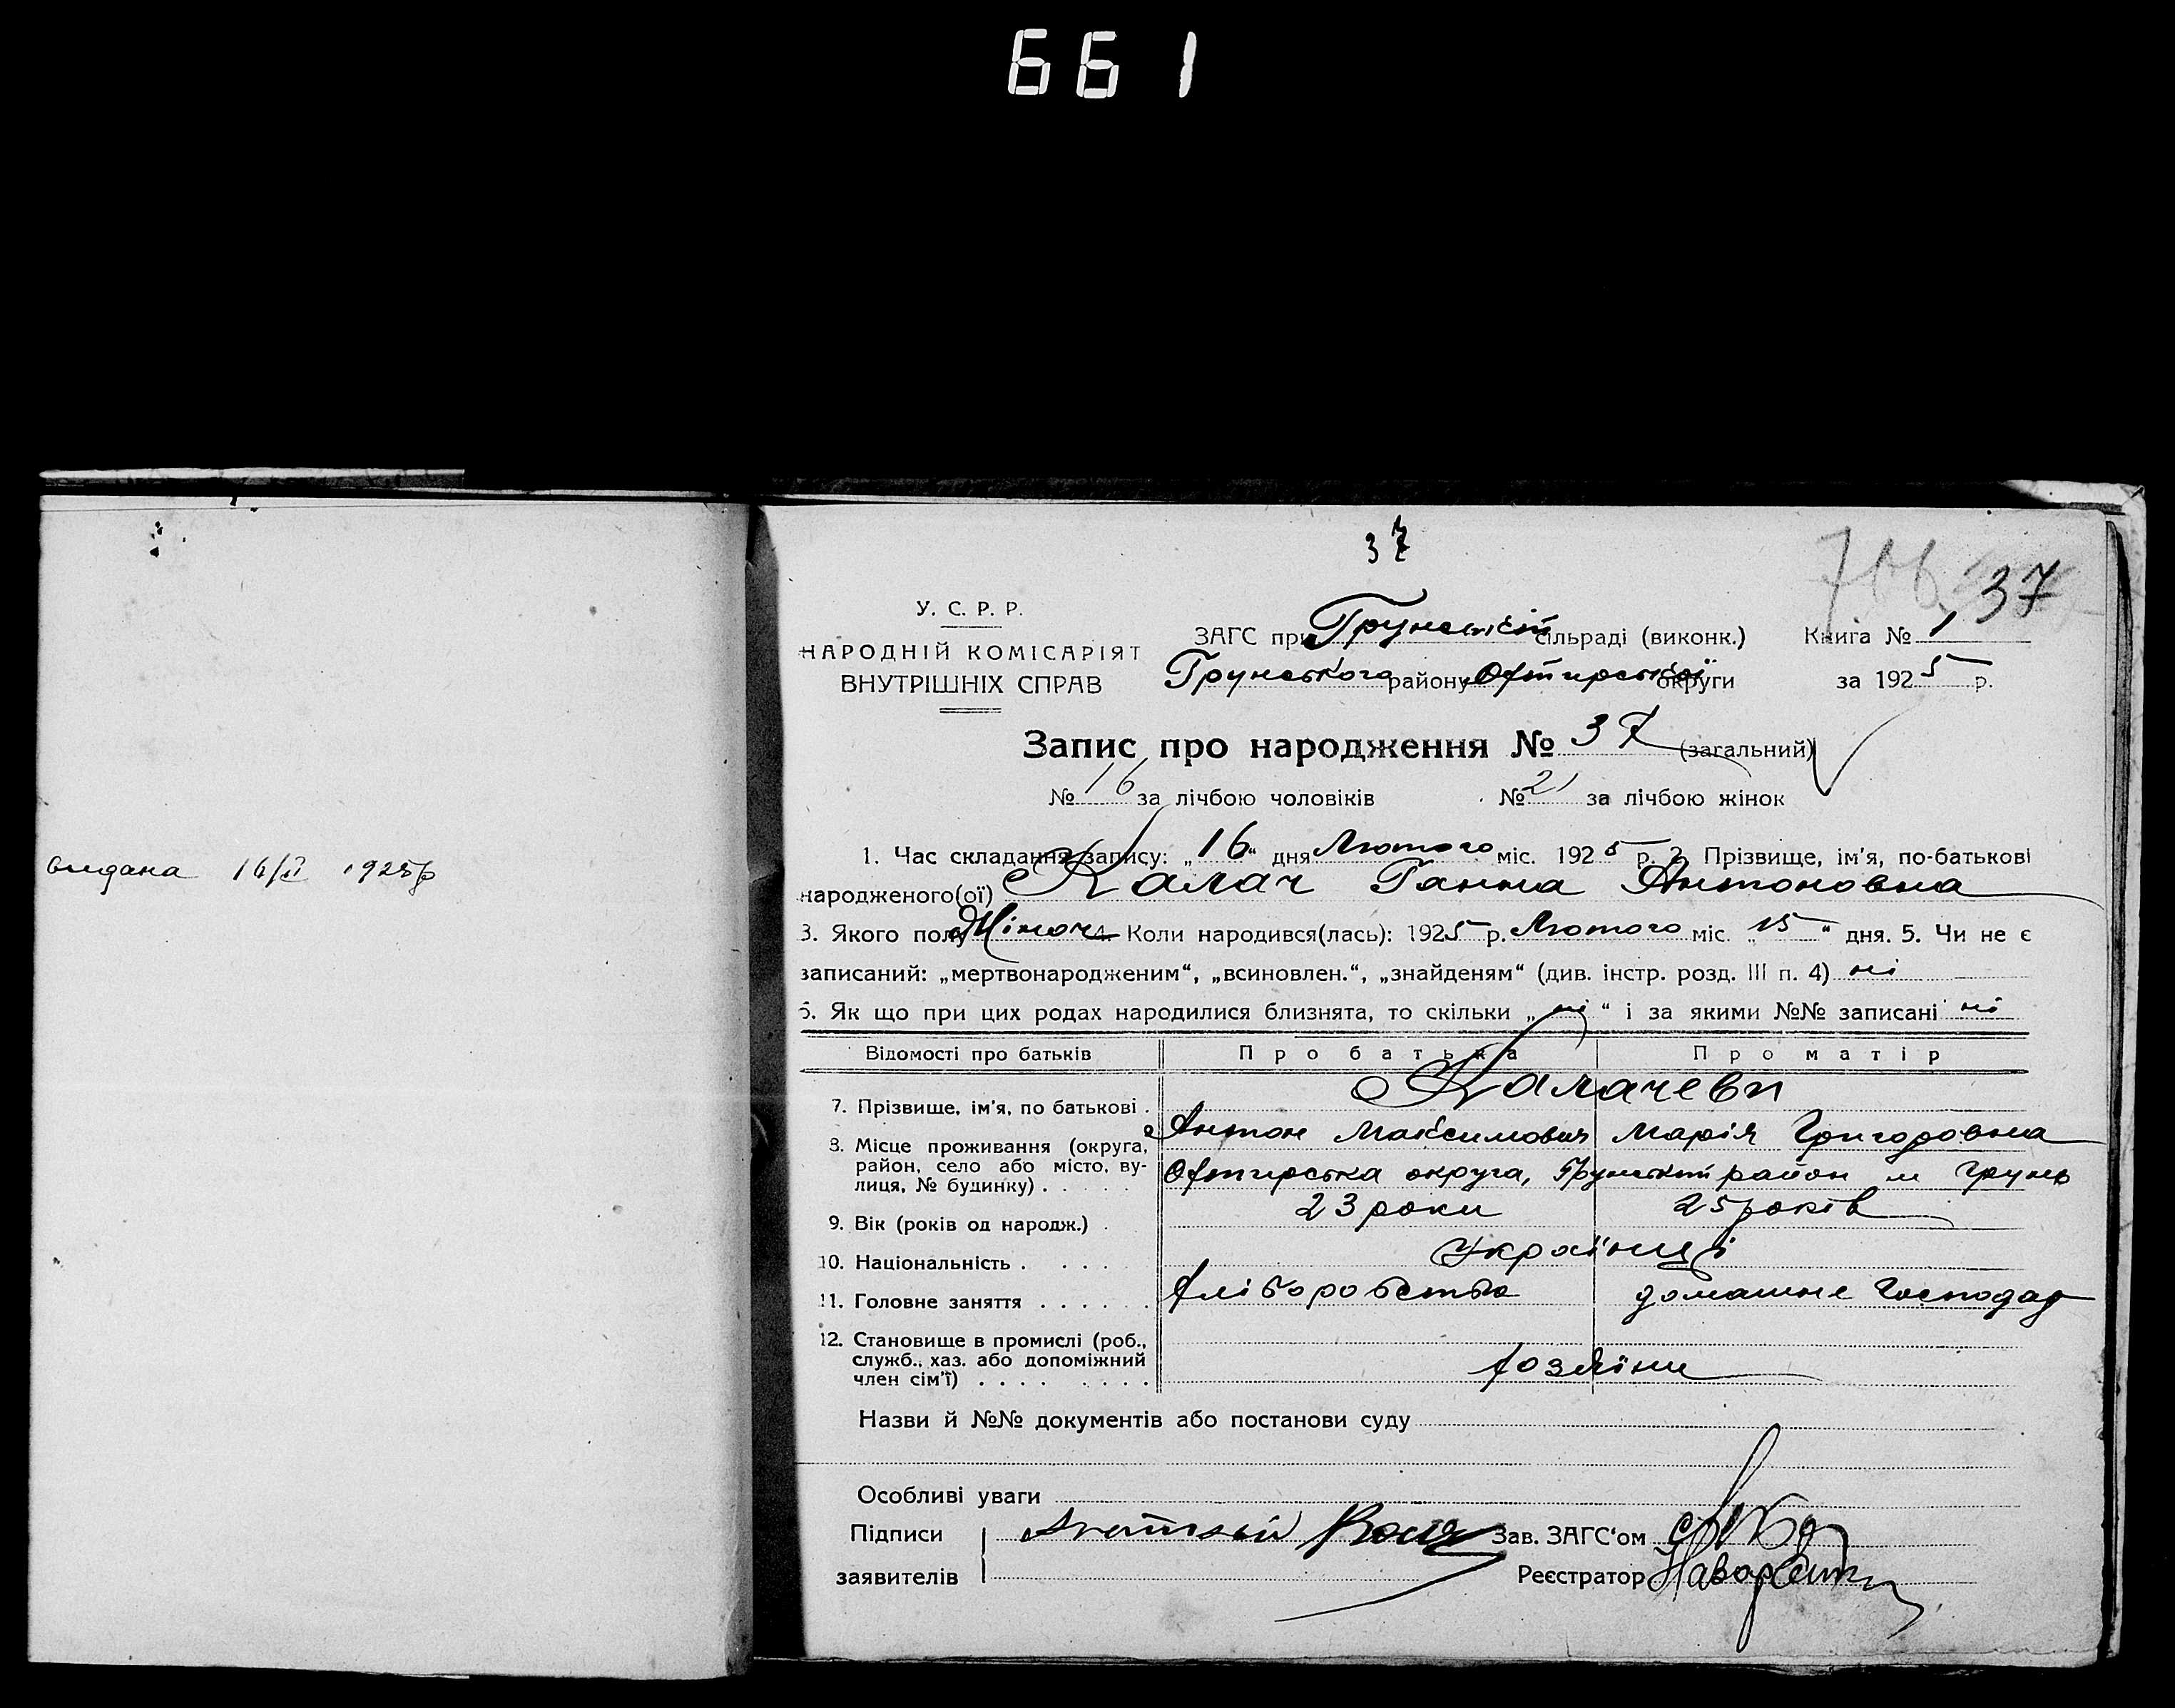 661
видана 16/II 1925 р
37
706 37
У. С. Р. Р.
НАРОДНІЙ КОМІСАРІЯТ
ВНУТРІШНІХ СПРАВ
ЗАГС при Грунській сільраді (виконк.) Книга № 1
Грунського району Охтирської округи за 1925 р.
Запис про народження № 37 (загальний)
№ 16 за лічбою чоловіків № 21 за лічбою жінок
1. Час складання запису: „16“ дня Лютого міс. 1925 р. 2. Прізвище, ім'я, по-батькові
народженого(ої) Калач Ганна Антоновна
3. Якого полу Жіноч 4. Коли народився(лась): 1925 р. Лютого міс. „15“ дня. 5. Чи не є
записаний: „мертвонародженим“, „всиновлен.“, „знайденям“ (див. інстр. розд. III п. 4) ні
6. Як що при цих родах народилися близнята, то скільки „ні“ і за якими №№ записані ні
Відомості про батьків Про батька Про матір
7. Прізвище, ім'я, по батькові . Калачеви
Антон Максимович Марія Григоровна
8. Місце проживання (округа, район, село або місто, вулиця, № будинку) . . . . . Охтирська округа, Грунський район м Грунь
9. Вік (років од народж.) . 23 роки 25 років
10. Національність . . . . Українці
11. Головне заняття . . . . . . Хліборобство домашнє господар
12. Становище в промислі (роб., служб., хаз. або допоміжний член сім'ї) . . . . . . . . Хозяїни
Назви й №№ документів або постанови суду
Особливі уваги
Підписи Зав. ЗАГС'ом
заявителів Реєстратор